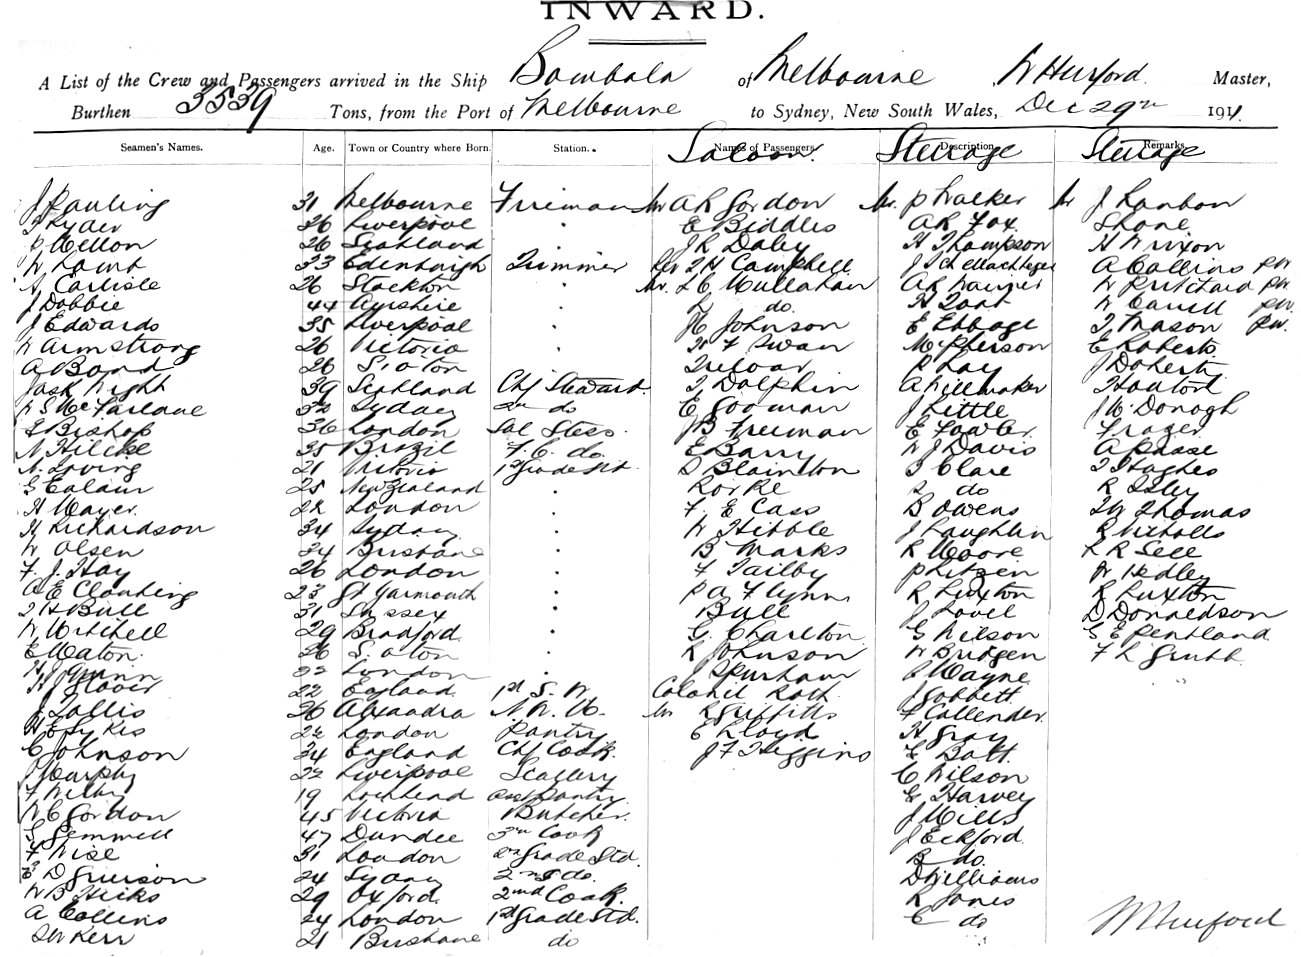 INWARD.
A List of the Crew and Passengers arrived in the Ship Bombala of Melbourne, W Hurford. Master,
Burthen 3539 Tons, from the Port of Melbourne to Sydney, New South Wales, Dec 29th 1911.
Seamen's Names. Age. Town or Country where Born. Station. Names of Passengers Saloon. Description Steerage Remarks. Steerage
J Pauling 31 Melbourne Fireman Mr A R Gordon Mr. P Walker Mr J Hanbon
J Ryder 36 Liverpool " E Biddles A R Fox Shone
P Mellon 26 Scotland " J R Daley H Thompson H Wrixon
W Lamb 33 Edenburgh Trimmer Rev J H Campbell J A Collins PW
A Carlisle 26 Stockton " Mr. L C Mullahan A R W Pritchard PW
J Dobbie 44 Ayrshire " L do. H W Carroll PW.
J Edwards 35 Liverpool " H Johnson E Ebbage T Mason PW.
W Armstrong 26 Victoria " W F Swan McPherson E Roberts
A Bond 26 S'oton Treloar P Hay J Doherty
Jack Wight 39 Scotland Chf Steward. T Dolphin A
W S McFarlane 32 Sydney 2nd do E Gooman J Little J McDonogh
E Bishop 36 London Sal Stess. J B Freeman E Fowler Frazer
N Hilcke 35 Brazil F. C. do. E Barry W J Davis A Passe
N. Loving 21 Victoria 1st Grade Std. D Blainton T Clare T Hughes
G Ealam 25 New Zealand " Rorke S do R Isley
H Mayer 22 London " F. E Cass B Owens J W Thomas
H Richardson 34 Sydney " W Hibble J Laughlin R Nicholls
W Olsen 24 Brisbane " B Marks R Moore R R Sell
F. J. Hay 26 London " F Tailby P W Hedley
A E Clanking 23 Gt Yarmouth " P A Flynn R Luxton R Luxton
T H Bull 31 Sussex " Bull J Lovel D Donaldson
W Mitchell 29 Bradford " G. Charlton G Wilson G E Pentland
E Maton 26 S. oton " R Johnson W Bridgen F L
H J Gunn 22 London " J Spurham P Wayne
H Glover 22 England 1st S. W Colonel Roth J Gobbett
J Tallis 26 Alexandra N. W. U. Mr R Griffiths F Callender
H E Sykes 22 London Pantry E Lloyd H Gray
C Johnson 34 England Chf Cook. J F Higgins F Batt
J Murphy 22 Liverpool Scullery C Wilson
F Wilby 19 asst Pantry G Harvey
W C Gordon 45 Victoria Butcher. J Mills
G Gemmell 47 Dundee 3rd Cook J Eckford
F Wise 31 London 2nd Grade Std. B do.
E D Grierson 24 Sydney 2nd S do. D Williams
W B Hicks 29 Oxford 2nd Cook. R Jones
A Collins 24 London 1st Grade Std. E do
J W Kerr 21 Brisbane do W Hurford